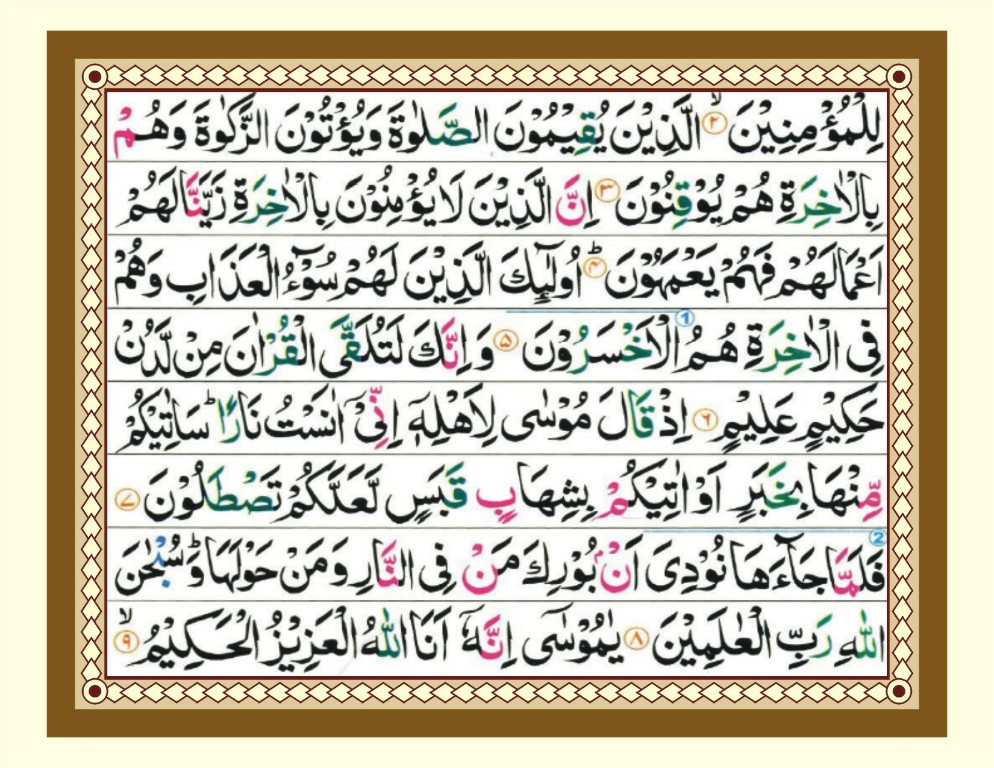 لِلْمُؤْمِنِيْنَ ۙ۲ الَّذِيْنَ يُقِيْمُوْنَ الصَّلٰوةَ وَيُؤْتُوْنَ الزَّكٰوةَ وَهُمْ
بِالْاٰخِرَةِ هُمْ يُوْقِنُوْنَ ۳ اِنَّ الَّذِيْنَ لَا يُؤْمِنُوْنَ بِالْاٰخِرَةِ زَيَّنَّا لَهُمْ
اَعْمَالَهُمْ فَهُمْ يَعْمَهُوْنَ ؕ۴ اُولٰٓئِكَ الَّذِيْنَ لَهُمْ سُوْٓءُ الْعَذَابِ وَهُمْ
فِى الْاٰخِرَةِ هُمُ الْاَخْسَرُوْنَ 1 ۵ وَاِنَّكَ لَتُلَقَّى الْقُرْاٰنَ مِنْ لَّدُنْ
حَكِيْمٍ عَلِيْمٍ ۶ اِذْ قَالَ مُوْسٰى لِاَهْلِهٖۤ اِنِّىْۤ اٰنَسْتُ نَارًا ؕ سَاٰتِيْكُمْ
مِّنْهَا بِخَبَرٍ اَوْ اٰتِيْكُمْ بِشِهَابٍ قَبَسٍ لَّعَلَّكُمْ تَصْطَلُوْنَ ۷
2 فَلَمَّا جَآءَهَا نُوْدِىَ اَنْۢ بُوْرِكَ مَنْ فِى النَّارِ وَمَنْ حَوْلَهَا ؕ وَسُبْحٰنَ
اللّٰهِ رَبِّ الْعٰلَمِيْنَ ۸ يٰمُوْسٰۤى اِنَّهٗۤ اَنَا اللّٰهُ الْعَزِيْزُ الْحَكِيْمُ ۙ۹